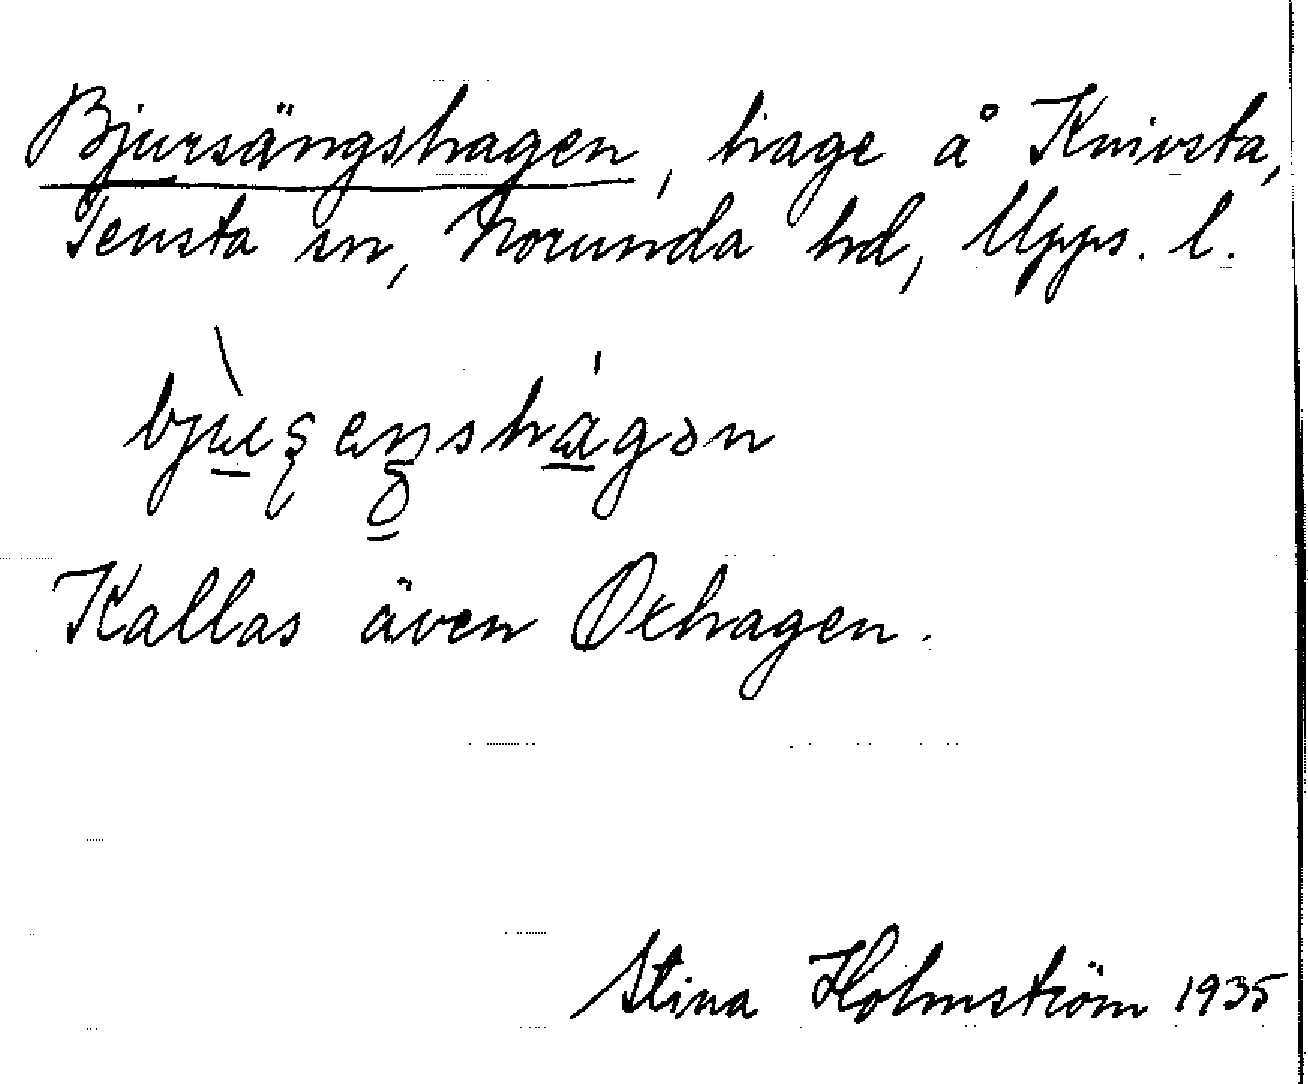 Bjursängshagen, hage å Knivsta,
Tensta sn, Norunda hd, Upps. l.
Kallas även Oxhagen.
Stina Holmström 1935